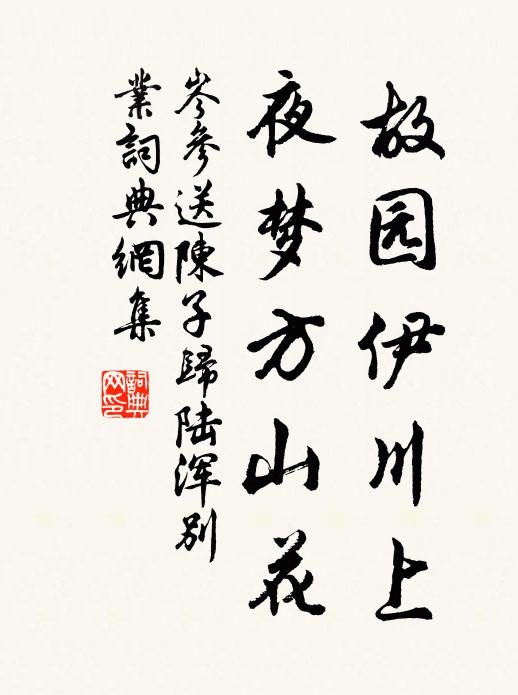 故园伊川上
夜梦方山花
岑参送陳子歸陆浑别
業詞典網集
詞典
网印